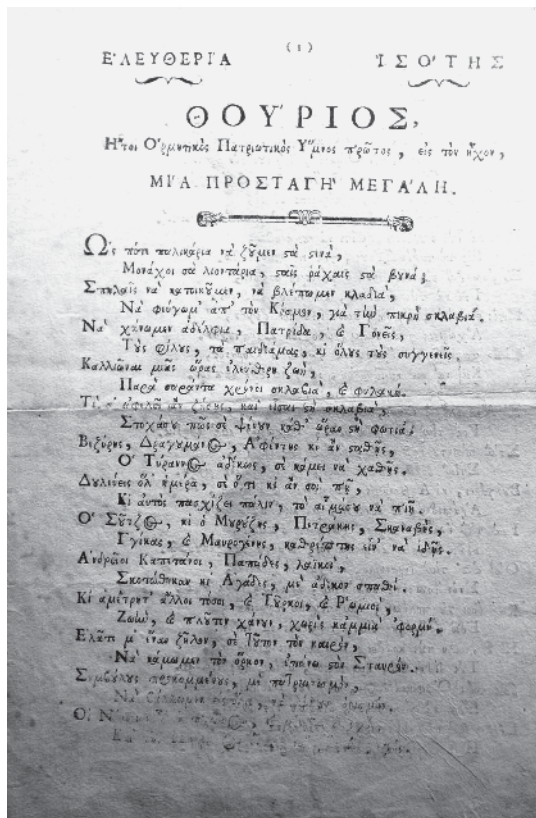 (1)
ἘΛΕΥΘΕΡΙΑ ἸΣΟΤΗΣ
ΘΟΥΡΙΟΣ,
Ἤτοι Ὁρμητικὸς Πατριωτικὸς Ὕμνος πρῶτος, εἰς τὸν ἦχον,
ΜΙΑ ΠΡΟΣΤΑΓΗ ΜΕΓΑΛΗ.
Ὡς πότε παλικάρια νὰ ζοῦμεν στὰ στενὰ,
Μονάχοι σὰ λιοντάρια, σταῖς ῥάχαις στὰ βουνά;
Σπηλαῖς νὰ κατοικοῦμεν, νὰ βλέπωμεν κλαδιὰ,
Νὰ φεύγωμ' ἀπ' τὸν Κόσμον, γιὰ τὴν πικρὴ σκλαβιά.
Νὰ χάνωμεν ἀδέλφια, Πατρίδα, & Γονεῖς,
Τοὺς φίλους, τὰ παιδιάμας, κι ὅλους τοὺς συγγενεῖς.
Καλλιῶναι μιᾶς ὥρας ἐλεύθερη ζωὴ,
Παρὰ σαράντα χρόνοι σκλαβιὰ, & φυλακή.
Τὶ σ' ὠφελεῖ ἂν ζήσῃς, καὶ εἶσαι στὴ σκλαβιὰ,
Στοχάσου πῶς σὲ ψένουν καθ' ὥραν στὴ φωτιά.
Βεζύρης, Δραγουμάνος, Ἀφέντης κι ἂν σταθῇς,
Ὁ Τύραννος ἀδίκως, σὲ κάμει νὰ χαθῇς.
Δουλεύεις ὅλ' ἡμέρα, σὲ ὅ,τι κι ἂν σοὶ πῇ,
Κι αὐτὸς πασχίζει πάλιν, τὸ αἷμάσου νὰ πιῇ.
Ὁ Σοῦτζος, κι ὁ Μουρούζης, Πετράκης, Σκαναβῆς,
Γγίκας, & Μαυρογένης, καθρέπτης εἶν' νὰ ἰδῇς.
Ἀνδρεῖοι Καπιτάνοι, Παπάδες, λαϊκοὶ,
Σκοτώθηκαν κι Ἀγάδες, μὲ ἄδικον σπαθί.
Κι ἀμέτρητ' ἄλλοι τόσοι, & Τοῦρκοι, & Ῥωμιοὶ,
Ζωὴν, & πλοῦτον χάνουν, χωρὶς κἀμμιὰ 'φορμή.
Ἐλᾶτε μ' ἕναν ζῆλον, σὲ τοῦτον τὸν καιρὸν,
Νὰ κάμωμεν τὸν ὅρκον, ἐπάνω στὸν Σταυρόν.
Συμβούλους προκομμένους, μὲ πατριωτισμὸν,